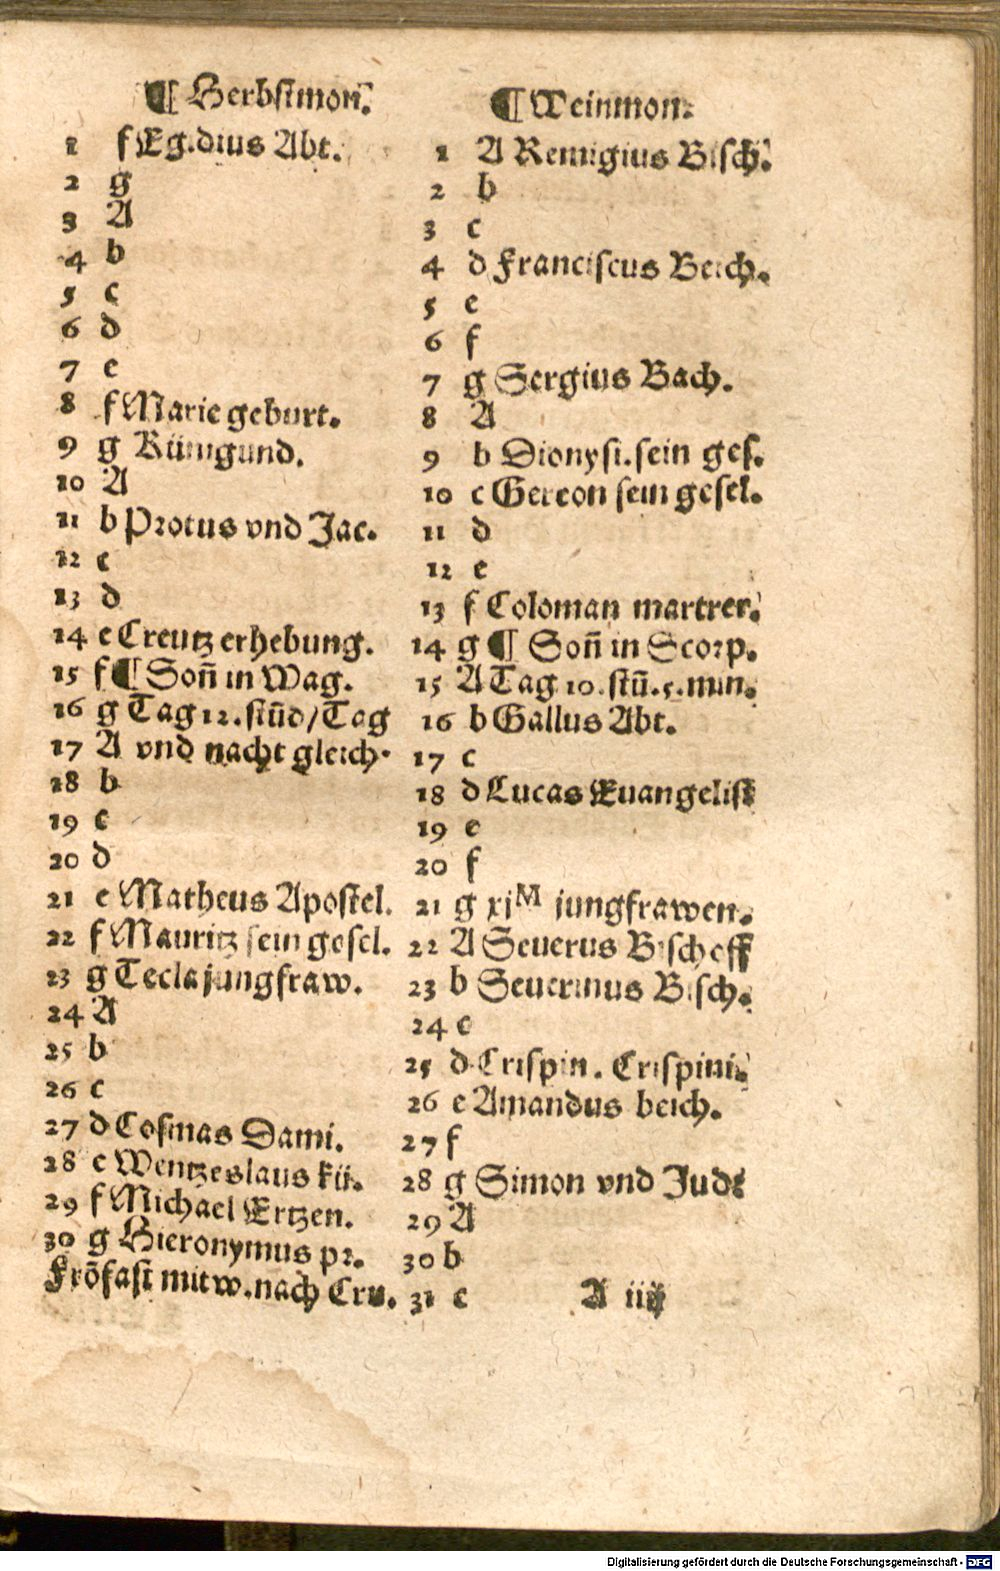 ¶ Herbstmon.
1 f Egidius Abt.
2 g
3 A
4 b
5 c
6 d
7 e
8 f Marie geburt.
9 g Künigund.
10 A
11 b Protus vnd Jac.
12 c
13 d
14 e Creutz erhebung.
15 f ¶ Soñ in Wag.
16 g Tag 12. stūd / Tag
17 A vnd nacht gleich.
18 b
19 c
20 d
21 e Matheus Apostel.
22 f Mauritz sein gesel.
23 g Tecla jungfraw.
24 A
25 b
26 c
27 d Cosmas Dami.
28 e Wentzeslaus kü.
29 f Michael Ertzen.
30 g Hieronymus pr.
Frōfast mitw. nach Cru.
¶ Weinmon.
1 A Remigius Bisch.
2 b
3 c
4 d Franciscus Beich.
5 e
6 f
7 g Sergius Bach.
8 A
9 b Dionysi. sein ges.
10 c Gereon sein gesel.
11 d
12 e
13 f Coloman martrer.
14 g ¶ Soñ in Scorp.
15 A Tag 10. stū. 5. min.
16 b Gallus Abt.
17 c
18 d Lucas Euangelist
19 e
20 f
21 g xjM jungfrawen.
22 A Seuerus Bischoff
23 b Seuerinus Bisch.
24 c
25 d Crispin. Crispini.
26 e Amandus beich.
27 f
28 g Simon vnd Jude
29 A
30 b
31 c
A iiij
Digitalisierung gefördert durch die Deutsche Forschungsgemeinschaft - DFG